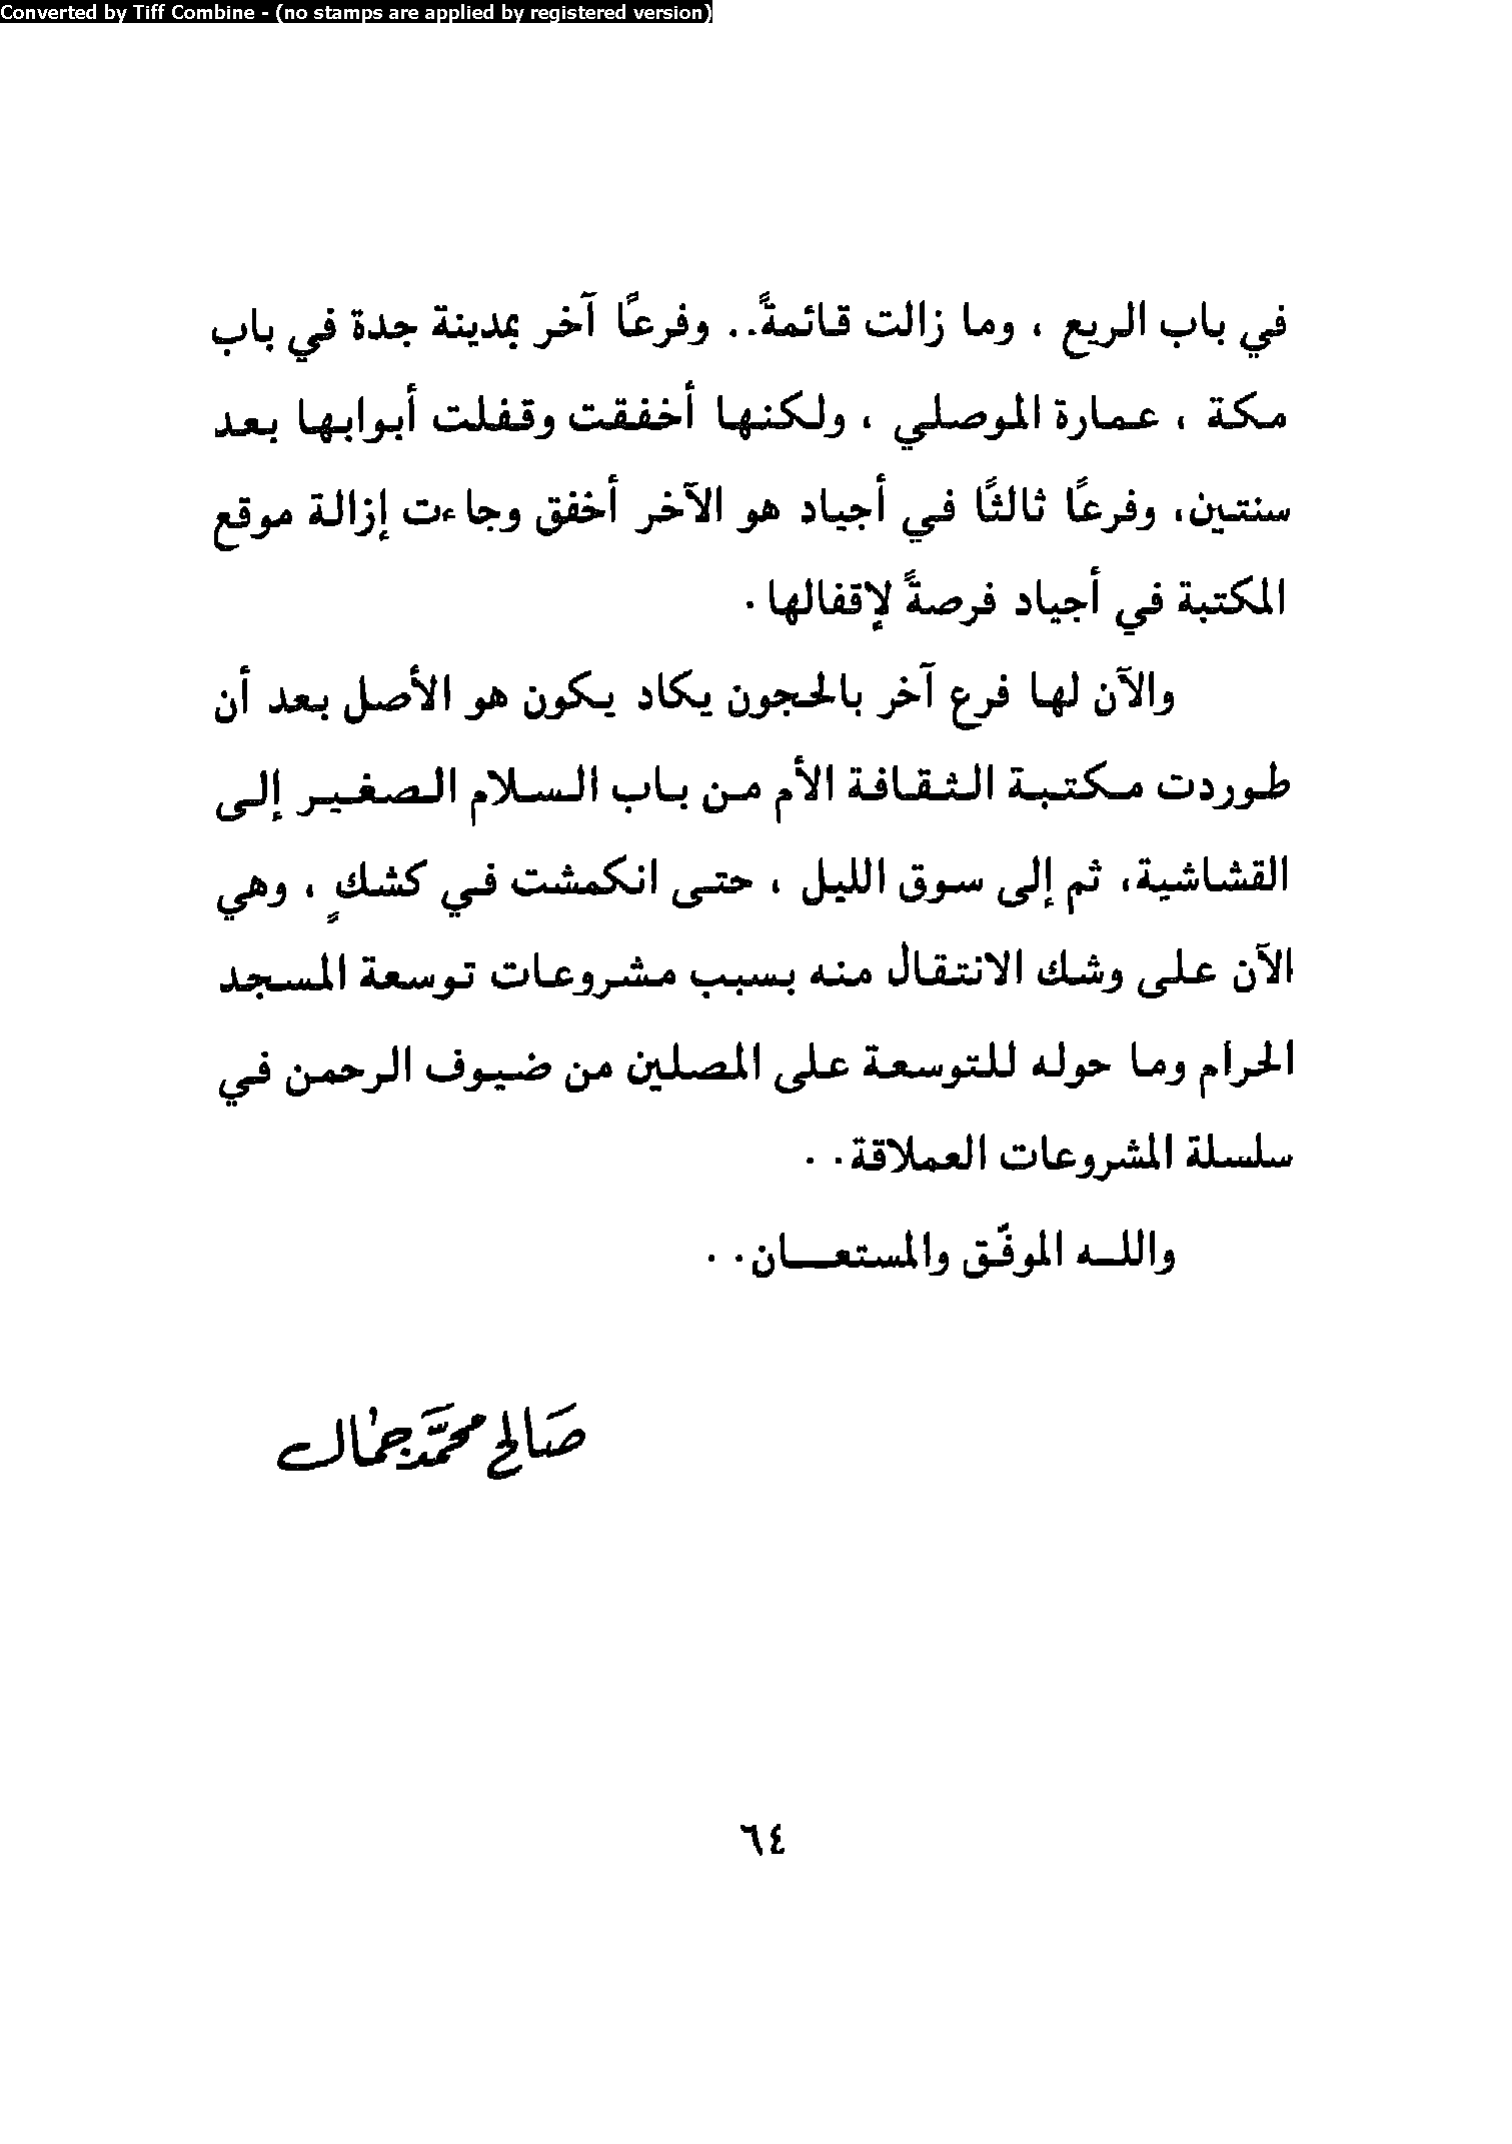 Converted by Tiff Combine - (no stamps are applied by registered version)
في باب الريع ، وما زالت قائمةً.. وفرعًا آخر بمدينة جدة في باب
مكة ، عمارة الموصلي ، ولكنها أخفقت وقفلت أبوابها بعد
سنتين، وفرعًا ثالثًا في أجياد هو الآخر أخفق وجاءت إزالة موقع
المكتبة في أجياد فرصةً لإقفالها .
والآن لها فرع آخر بالحجون يكاد يكون هو الأصل بعد أن
طوردت مكتبة الثقافة الأم من باب السلام الصغير إلى
القشاشية، ثم إلى سوق الليل ، حتى انكمشت في كشكٍ ، وهي
الآن على وشك الانتقال منه بسبب مشروعات توسعة المسجد
الحرام وما حوله للتوسعة على المصلين من ضيوف الرحمن في
سلسلة المشروعات العملاقة. .
واللـه الموفّق والمستعـــان. .
صَالح محمَّد جمَال
٦٤